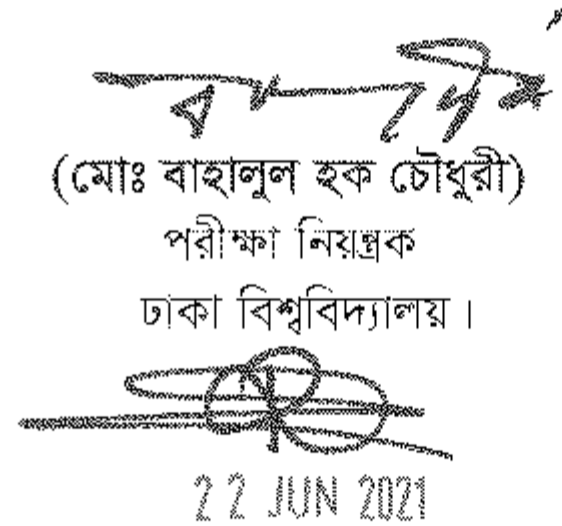 (মোঃ বাহালুল হক চৌধুরী)
পরীক্ষা নিয়ন্ত্রক
ঢাকা বিশ্ববিদ্যালয়।
22 JUN 2021